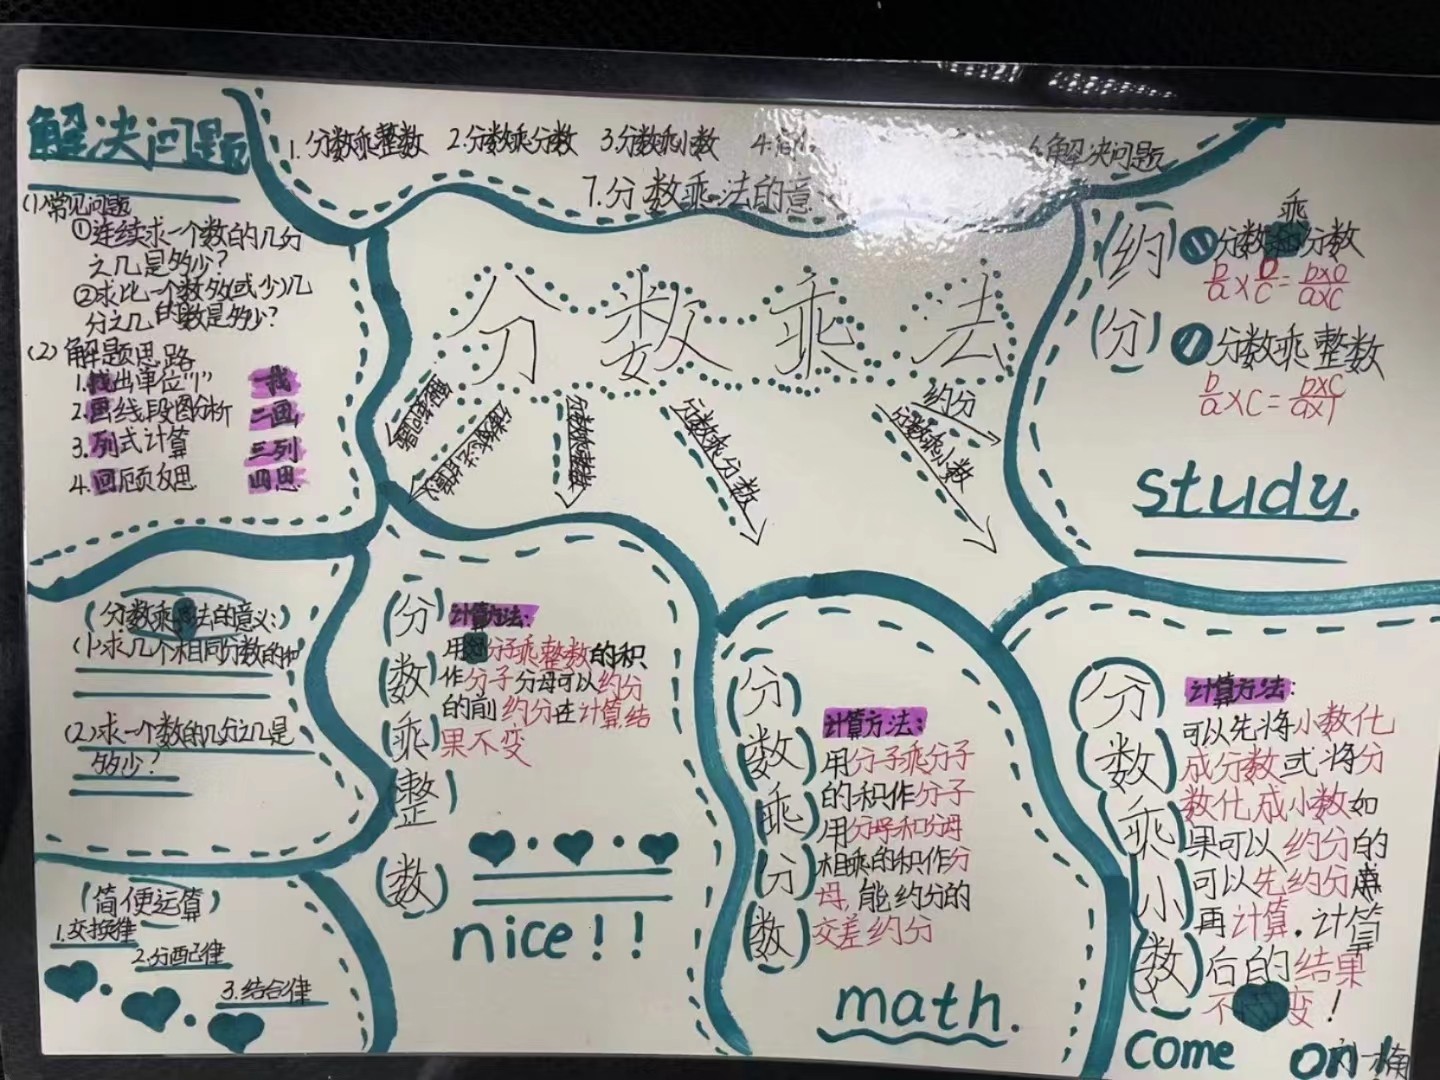 解决问题
1.分数乘整数 2.分数乘分数 3.分数乘小数 4.简
6.解决问题
7.分数乘法的意
(1)常见问题
①连续求一个数的几分
之几是多少?
②求比一个数多(或少)几
分之几的数是多少?
(2)解题思路
1.找出单位"1" 一找
2.画线段图分析 二画
3.列式计算 三列
4.回顾反思 四思
分数乘法
分数乘整数
分数乘分数
分数乘小数
约分
(约)
(分)
分数乘分数
b/a×b/c=b×b/a×c
分数乘整数
b/a×c=b×c/a×1
study.
(分数乘法的意义:)
(1)求几个相同分数的和
(2)求一个数的几分之几是
多少?
(简便运算)
1.交换律
2.分配律
3.结合律
(分数乘整数)
计算方法:
用分子乘整数的积
作分子分母可以约分
的前约分在计算,结
果不变
nice!!
(分数乘分数)
计算方法:
用分子乘分子
的积作分子
用分母和分母
相乘的积作分
母,能约分的
交差约分
math.
(分数乘小数)
计算方法:
可以先将小数化
成分数或将分
数化成小数如
果可以约分的
可以先约分
再计算.计算
后的结果
不变!
come on!